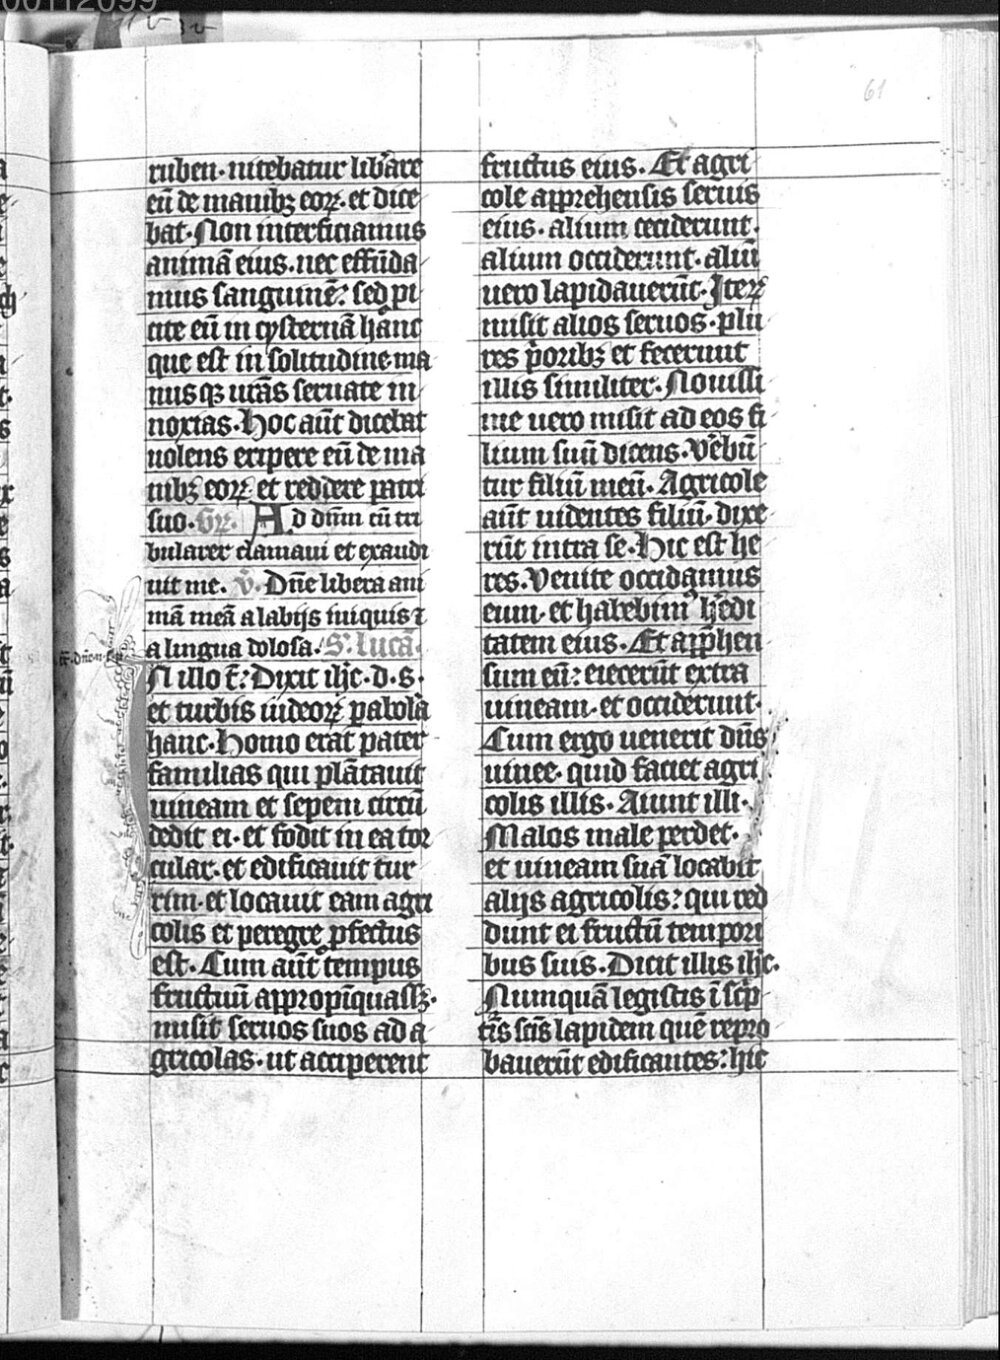 00112099
61
ruben · nitebatur lib̾are
eū de manibꝫ eoꝝ · et dice
bat · Non interficiamus
animā eius · nec effūda
mus sanguinē : sed ꝓi
cite eū in cysternā hāc
que est in solitudine · ma
nusqꝫ ur̄as seruate in
noxias · Hoc aūt dicebat
uolens eripere eū de ma
nibꝫ eoꝝ et reddere patri
suo · Gr̄ · Ad dn̄m cū tri
bularer clamaui et exaudi
uit me . v̄ · Dn̄e libera ani
mā meā a labijs iniquis ⁊
a lingua dolosa · S. lucā
N illo t̄ : Dixit ih̄c · d · s ·
et turbis iudeoꝝ parabolā
hanc · Homo erat pater
familias qui plātauit
uineam et sepem circū
dedit ei · et fodit in ea tor
cular · et edificauit tur
rim · et locauit eam agri
colis et peregre ꝓfectus
est · Cum aūt tempus
fructuū appropīquassꝫ ·
misit seruos suos ad a
gricolas · ut acciperent
fructus eius · Et agri
cole apprehensis seruis
eius · alium ceciderunt ·
alium occiderunt · aliū
uero lapidauerūt · Iteꝝ
misit alios seruos · plu
res p̄oribꝫ et fecerunt
illis similiter · Nouissi
me uero misit ad eos fi
lium suū dicens · Ve̾bū
tur filiū meū · Agricole
aūt uidentes filiū · dixe
rūt intra se · Hic est he
res · Venite occidamus
eum · et habebimꝰ he̾di
tatem eius · Et app̾hen
sum eū : eiecerūt extra
uineam · et occiderunt ·
Cum ergo uenerit dn̄s
uinee · quid faciet agri
colis illis · Aiunt illi ·
Malos male perdet ·
et uineam suā locabit
alijs agricolis : qui red
dunt ei fructū tempori
bus suis · Dicit illis ih̄c ·
Numquā legistis ī sc̄p
tr̄is · lapidem quē repro
bauerūt edificantes : hic